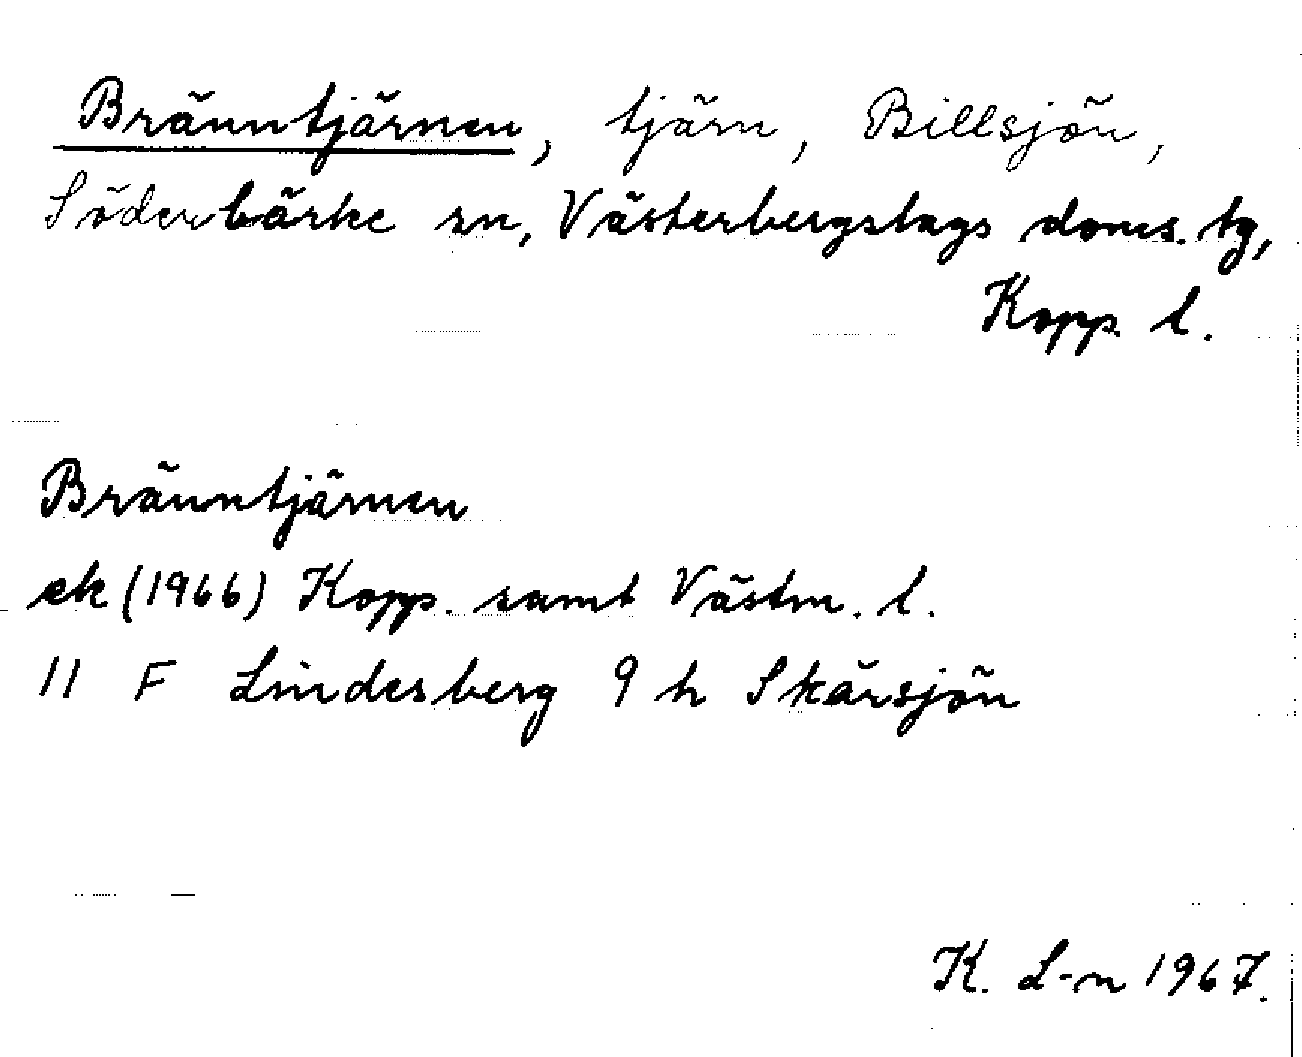 Bränntjärnen, tjärn, Billsjön,
Söderbärke sn, Västerbergslags doms. tg,
Kopp. l.
Bränntjärnen
ek (1966) Kopp. samt Västm. l.
11 F Lindesberg 9 h Skärsjön
K. L-n 1967.